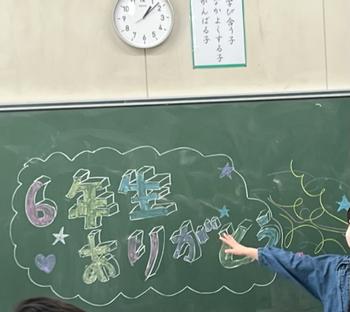 学び合う子
なかよくする子
がんばる子
6年生
ありがとう